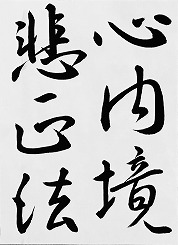 心内境
悲正法